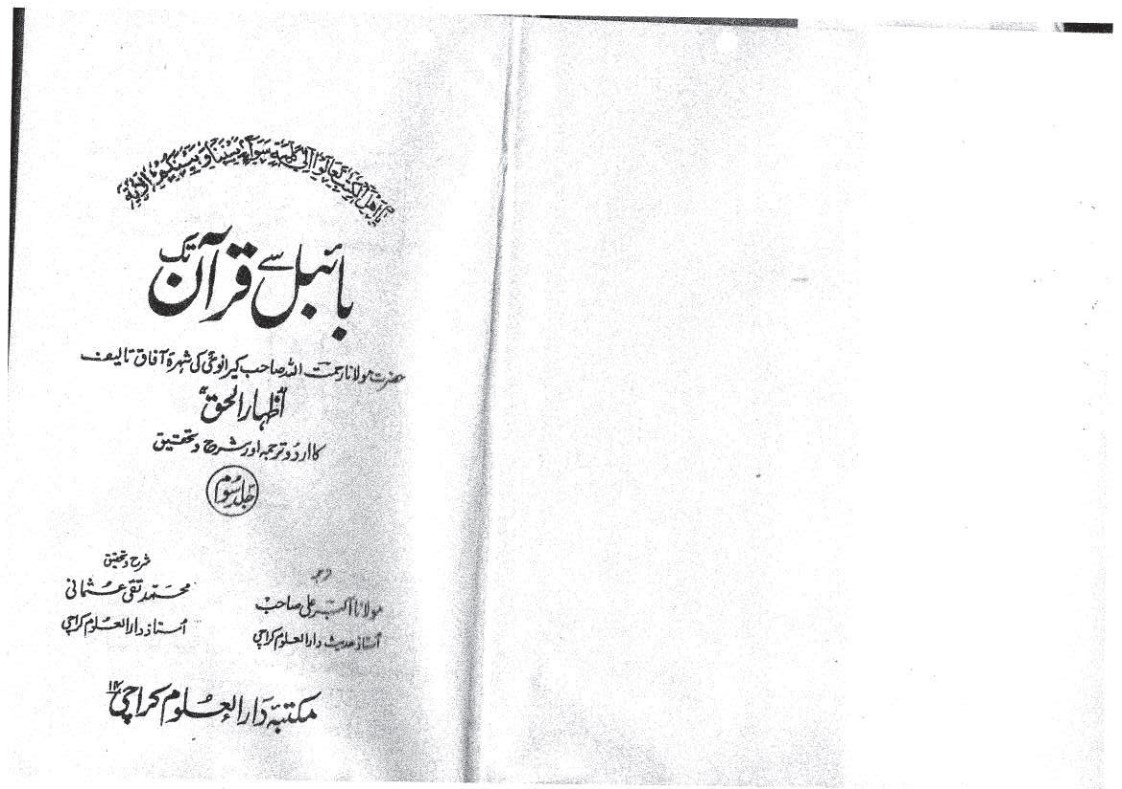 يٰۤاَهْلَ الْكِتٰبِ تَعَالَوْا اِلٰى كَلِمَةٍ سَوَآءٍۢ بَيْنَنَا وَ بَيْنَكُمْ الاٰية
بائبل سے قرآن تک
حضرت مولانا رحمت اللہ صاحب کیرانویؒ کی شہرۂ آفاق تالیف
"اظہار الحق"
کا اردو ترجمہ اور شرح و تحقیق
جلد سوم
ترجمہ
مولانا اکبر علی صاحب
استاذ حدیث دارالعلوم کراچی
شرح و تحقیق
محمد تقی عثمانی
استاذ دارالعلوم کراچی
مکتبہ دارالعلوم کراچی ۱۴